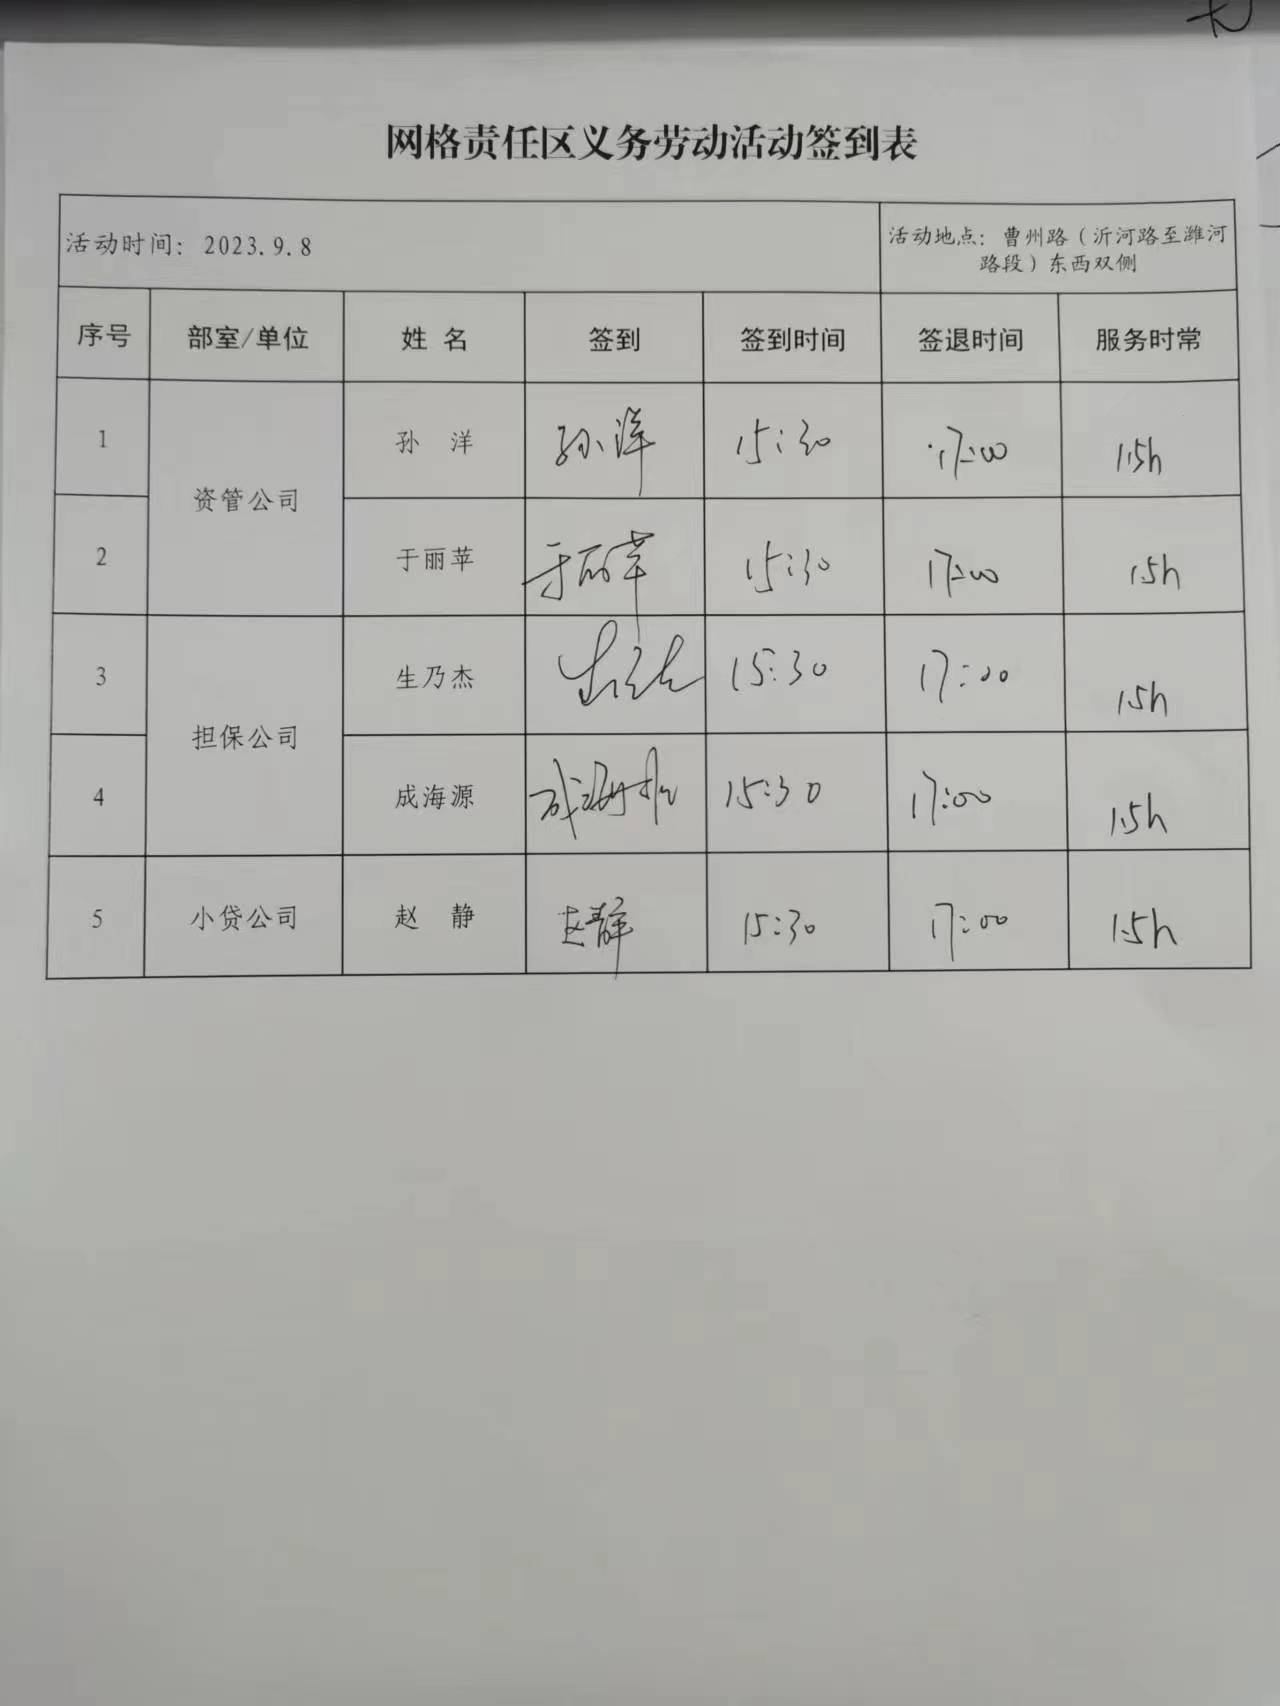 网格责任区义务劳动活动签到表
活动时间：2023.9.8
活动地点：曹州路（沂河路至潍河
路段）东西双侧
序号 部室/单位 姓 名 签到 签到时间 签退时间 服务时常
资管公司
1 孙 洋 孙洋 15:30 17:00 1.5h
2 于丽苹 于丽苹 15:30 17:00 1.5h
担保公司
3 生乃杰 15:30 17:00 1.5h
4 成海源 成海源 15:30 17:00 1.5h
5 小贷公司 赵 静 赵静 15:30 17:00 1.5h